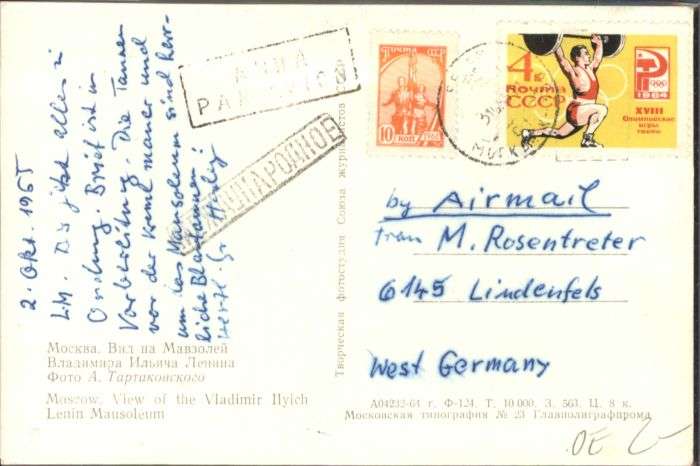 2. Okt. 1965
LM. Du jetzt alles in
Ordnung. Brief ist in
Vorbereitung. Die Tannen
vor der Kreml mauer und
um das Mausoleum sind herr-
liche Blautannen!
Herzl. Gr.
АВИА
PAR AVION
МЕЖДУНАРОДНОЕ
Москва. Вид на Мавзолей
Владимира Ильича Ленина
Фото А. Тартаковского
Moscow. View of the Vladimir Ilyich
Lenin Mausoleum
Творческая фотостудия Союза журналистов СССР
ПОЧТА СССР
10 КОП
4 к
ПОЧТА
СССР
1964
XVIII
Олимпийские
игры
Токио
МОСКВА
by Airmail
Frau M. Rosentreter
6145 Lindenfels
West Germany
А04232-64 г. Ф-124. Т. 10 000. З. 563. Ц. 8 к.
Московская типография № 23 Главполиграфпрома